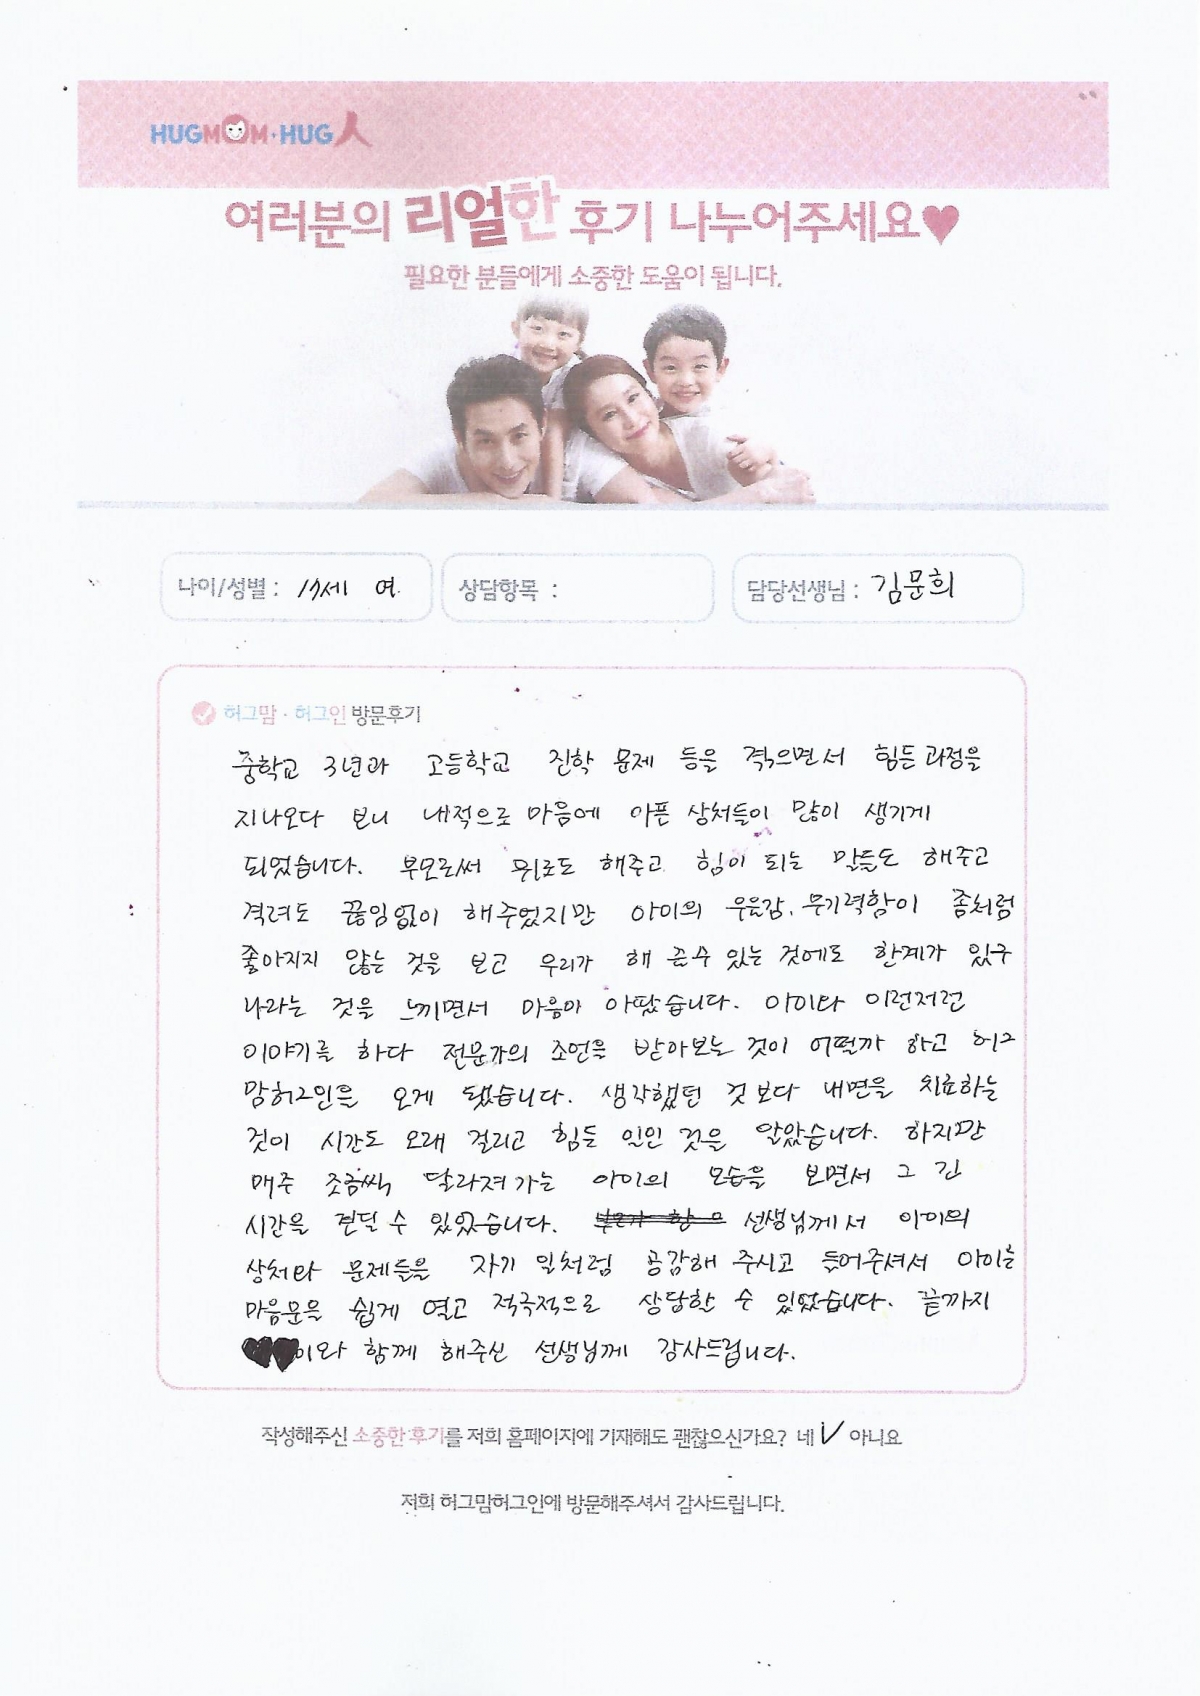 HUGMOM·HUG人
여러분의 리얼한 후기 나누어주세요♥
필요한 분들에게 소중한 도움이 됩니다.
나이/성별 : 17세 여. 상담항목 : 담당선생님 : 김문희
허그맘·허그인 방문후기
중학교 3년과 고등학교 진학 문제 등을 겪으면서 힘든 과정을
지나오다 보니 내적으로 마음에 아픈 상처들이 많이 생기게
되었습니다. 부모로써 위로도 해주고 힘이 되는 말들도 해주고
격려도 끊임없이 해주었지만 아이의 우울감, 무기력함이 좀처럼
좋아지지 않는 것을 보고 우리가 해 줄수 있는 것에도 한계가 있구
나라는 것을 느끼면서 마음이 아팠습니다. 아이와 이런저런
이야기를 하다 전문가의 조언을 받아보는 것이 어떨까 하고 허그
맘허그인을 오게 됐습니다. 생각했던 것 보다 내면을 치료하는
것이 시간도 오래 걸리고 힘든 일인 것을 알았습니다. 하지만
매주 조금씩 달라져 가는 아이의 모습을 보면서 그 긴
시간을 견딜 수 있었습니다. 선생님께서 아이의
상처와 문제들을 자기 일처럼 공감해 주시고 들어주셔서 아이는
마음문을 쉽게 열고 적극적으로 상담할 수 있었습니다. 끝까지
이와 함께 해주신 선생님께 감사드립니다.
작성해주신 소중한 후기를 저희 홈페이지에 기재해도 괜찮으신가요? 네 V 아니요
저희 허그맘허그인에 방문해주셔서 감사드립니다.